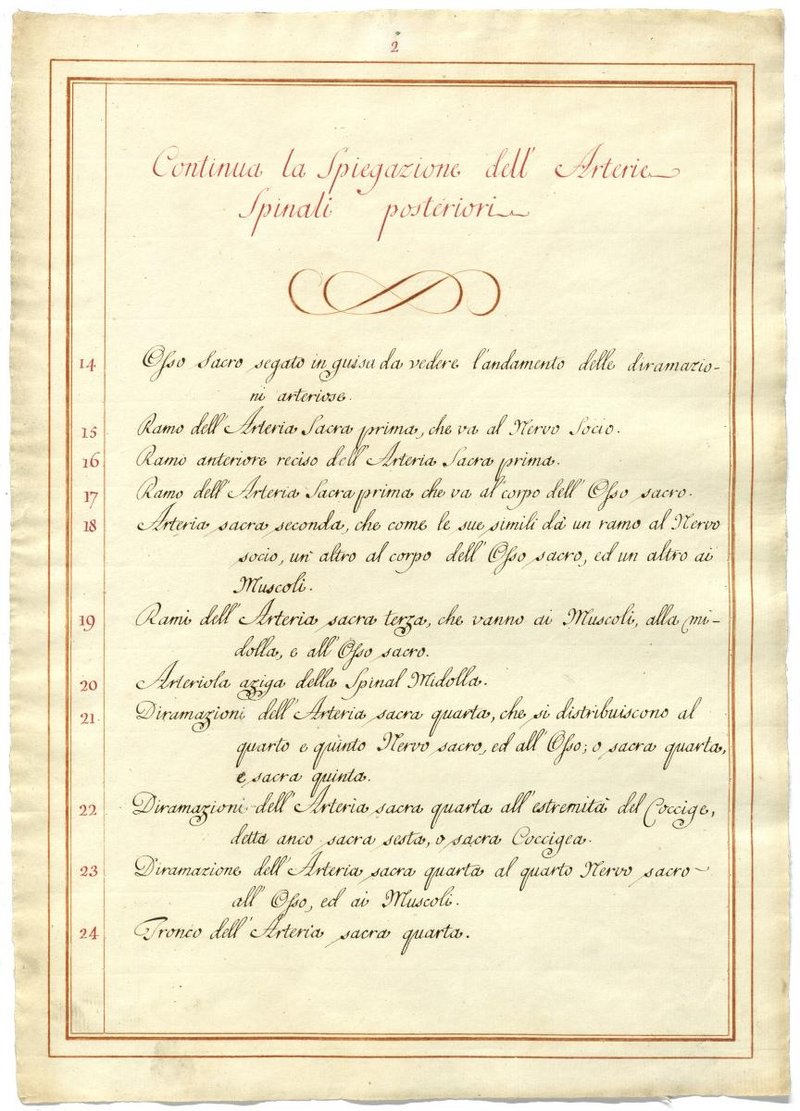 2
Continua la Spiegazione dell' Arterie
Spinali posteriori
14 Osso Sacro segato in guisa da vedere l'andamento delle diramazio-
ni arteriose.
15 Ramo dell' Arteria Sacra prima, che va al Nervo Socio.
16 Ramo anteriore reciso dell' Arteria Sacra prima.
17 Ramo dell' Arteria Sacra prima che va al corpo dell' Osso sacro.
18 Arteria sacra seconda, che come le sue simili dà un ramo al Nervo
socio, un' altro al corpo dell' Osso sacro, ed un altro ai
Muscoli.
19 Rami dell' Arteria sacra terza, che vanno ai Muscoli, alla mi-
dolla, e all' Osso sacro.
20 Arteriola aziga della Spinal Midolla.
21. Diramazioni dell' Arteria sacra quarta, che si distribuiscono al
quarto e quinto Nervo sacro, ed all' Osso; o sacra quarta,
e sacra quinta.
22 Diramazioni dell' Arteria sacra quarta all' estremità del Coccige,
detta anco sacra sesta, o sacra Coccigea.
23 Diramazione dell' Arteria sacra quarta al quarto Nervo sacro
all' Osso, ed ai Muscoli.
24 Tronco dell' Arteria sacra quarta.